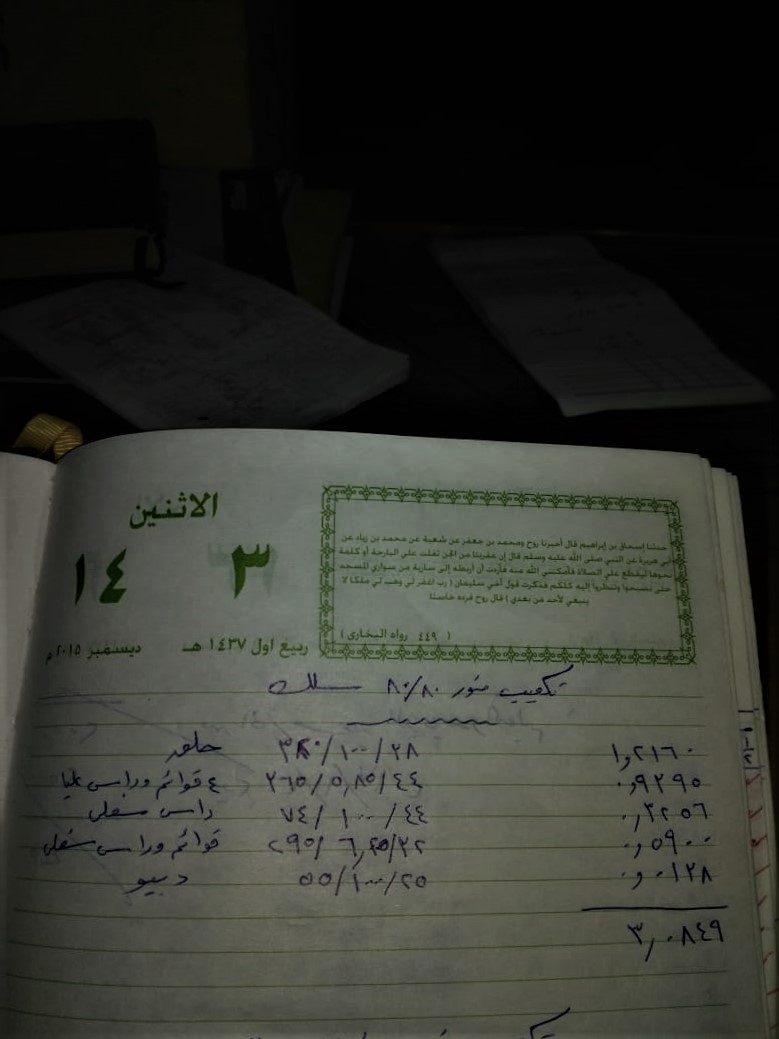 الاثنين
٣ ١٤
ربيع اول ١٤٣٧ هـ ديسمبر ٢٠١٥ م
حدثنا إسحاق بن إبراهيم قال أخبرنا روح ومحمد بن جعفر عن شعبة عن محمد بن زياد عن
أبي هريرة عن النبي صلى الله عليه وسلم قال إن عفريتا من الجن تفلت على البارحة أو كلمة
نحوها ليقطع علي الصلاة فأمكنني الله منه فأردت أن أربطه إلى سارية من سواري المسجد
حتى تصبحوا وتنظروا إليه كلكم فذكرت قول أخي سليمان ( رب اغفر لي وهب لي ملكا لا
ينبغي لأحد من بعدي ) قال روح فرده خاسئا
( ٤٤٩ رواه البخارى )
تكعيب منور ٨٠/٨٠ سلك
١,٢١٦٠ ٣٨٠/١٠٠/٢٨ حلق
٠,٩٢٩٥ ٢٦٥/٥,٨٥/٤٤ ٤ قوائم وراس عليا
٠,٣٢٥٦ ٧٤/١٠٠/٤٤ راس سفلى
٠,٥٩٠٠ ٢٩٥/٦,٢٥/٣٢ قوائم وراس سفلى
٠,٠١٢٨ ٥٥/١٠٠/٢٥
٣,٠٨٤٩